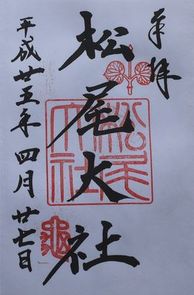 奉拝
松尾大社
平成廿五年四月廿七日
松尾大社